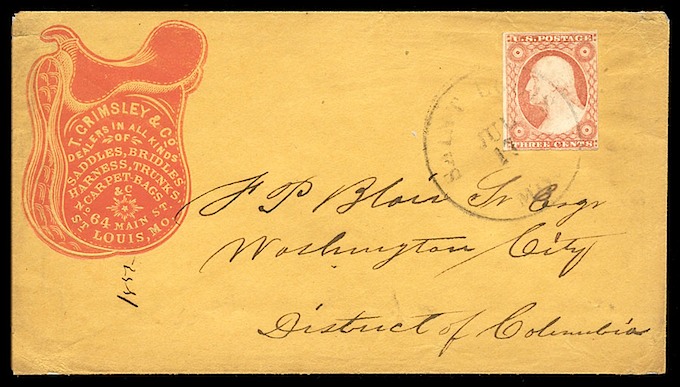 T. GRIMSLEY & CO.
DEALERS IN ALL KINDS
OF
SADDLES, BRIDLES,
HARNESS, TRUNKS,
CARPET-BAGS
&C
64 MAIN ST.
ST LOUIS, MO.
U.S. POSTAGE
THREE CENTS
SAINT
JUL
MO.
F P Blair Sr Esqr
Washington City
District of Columbia